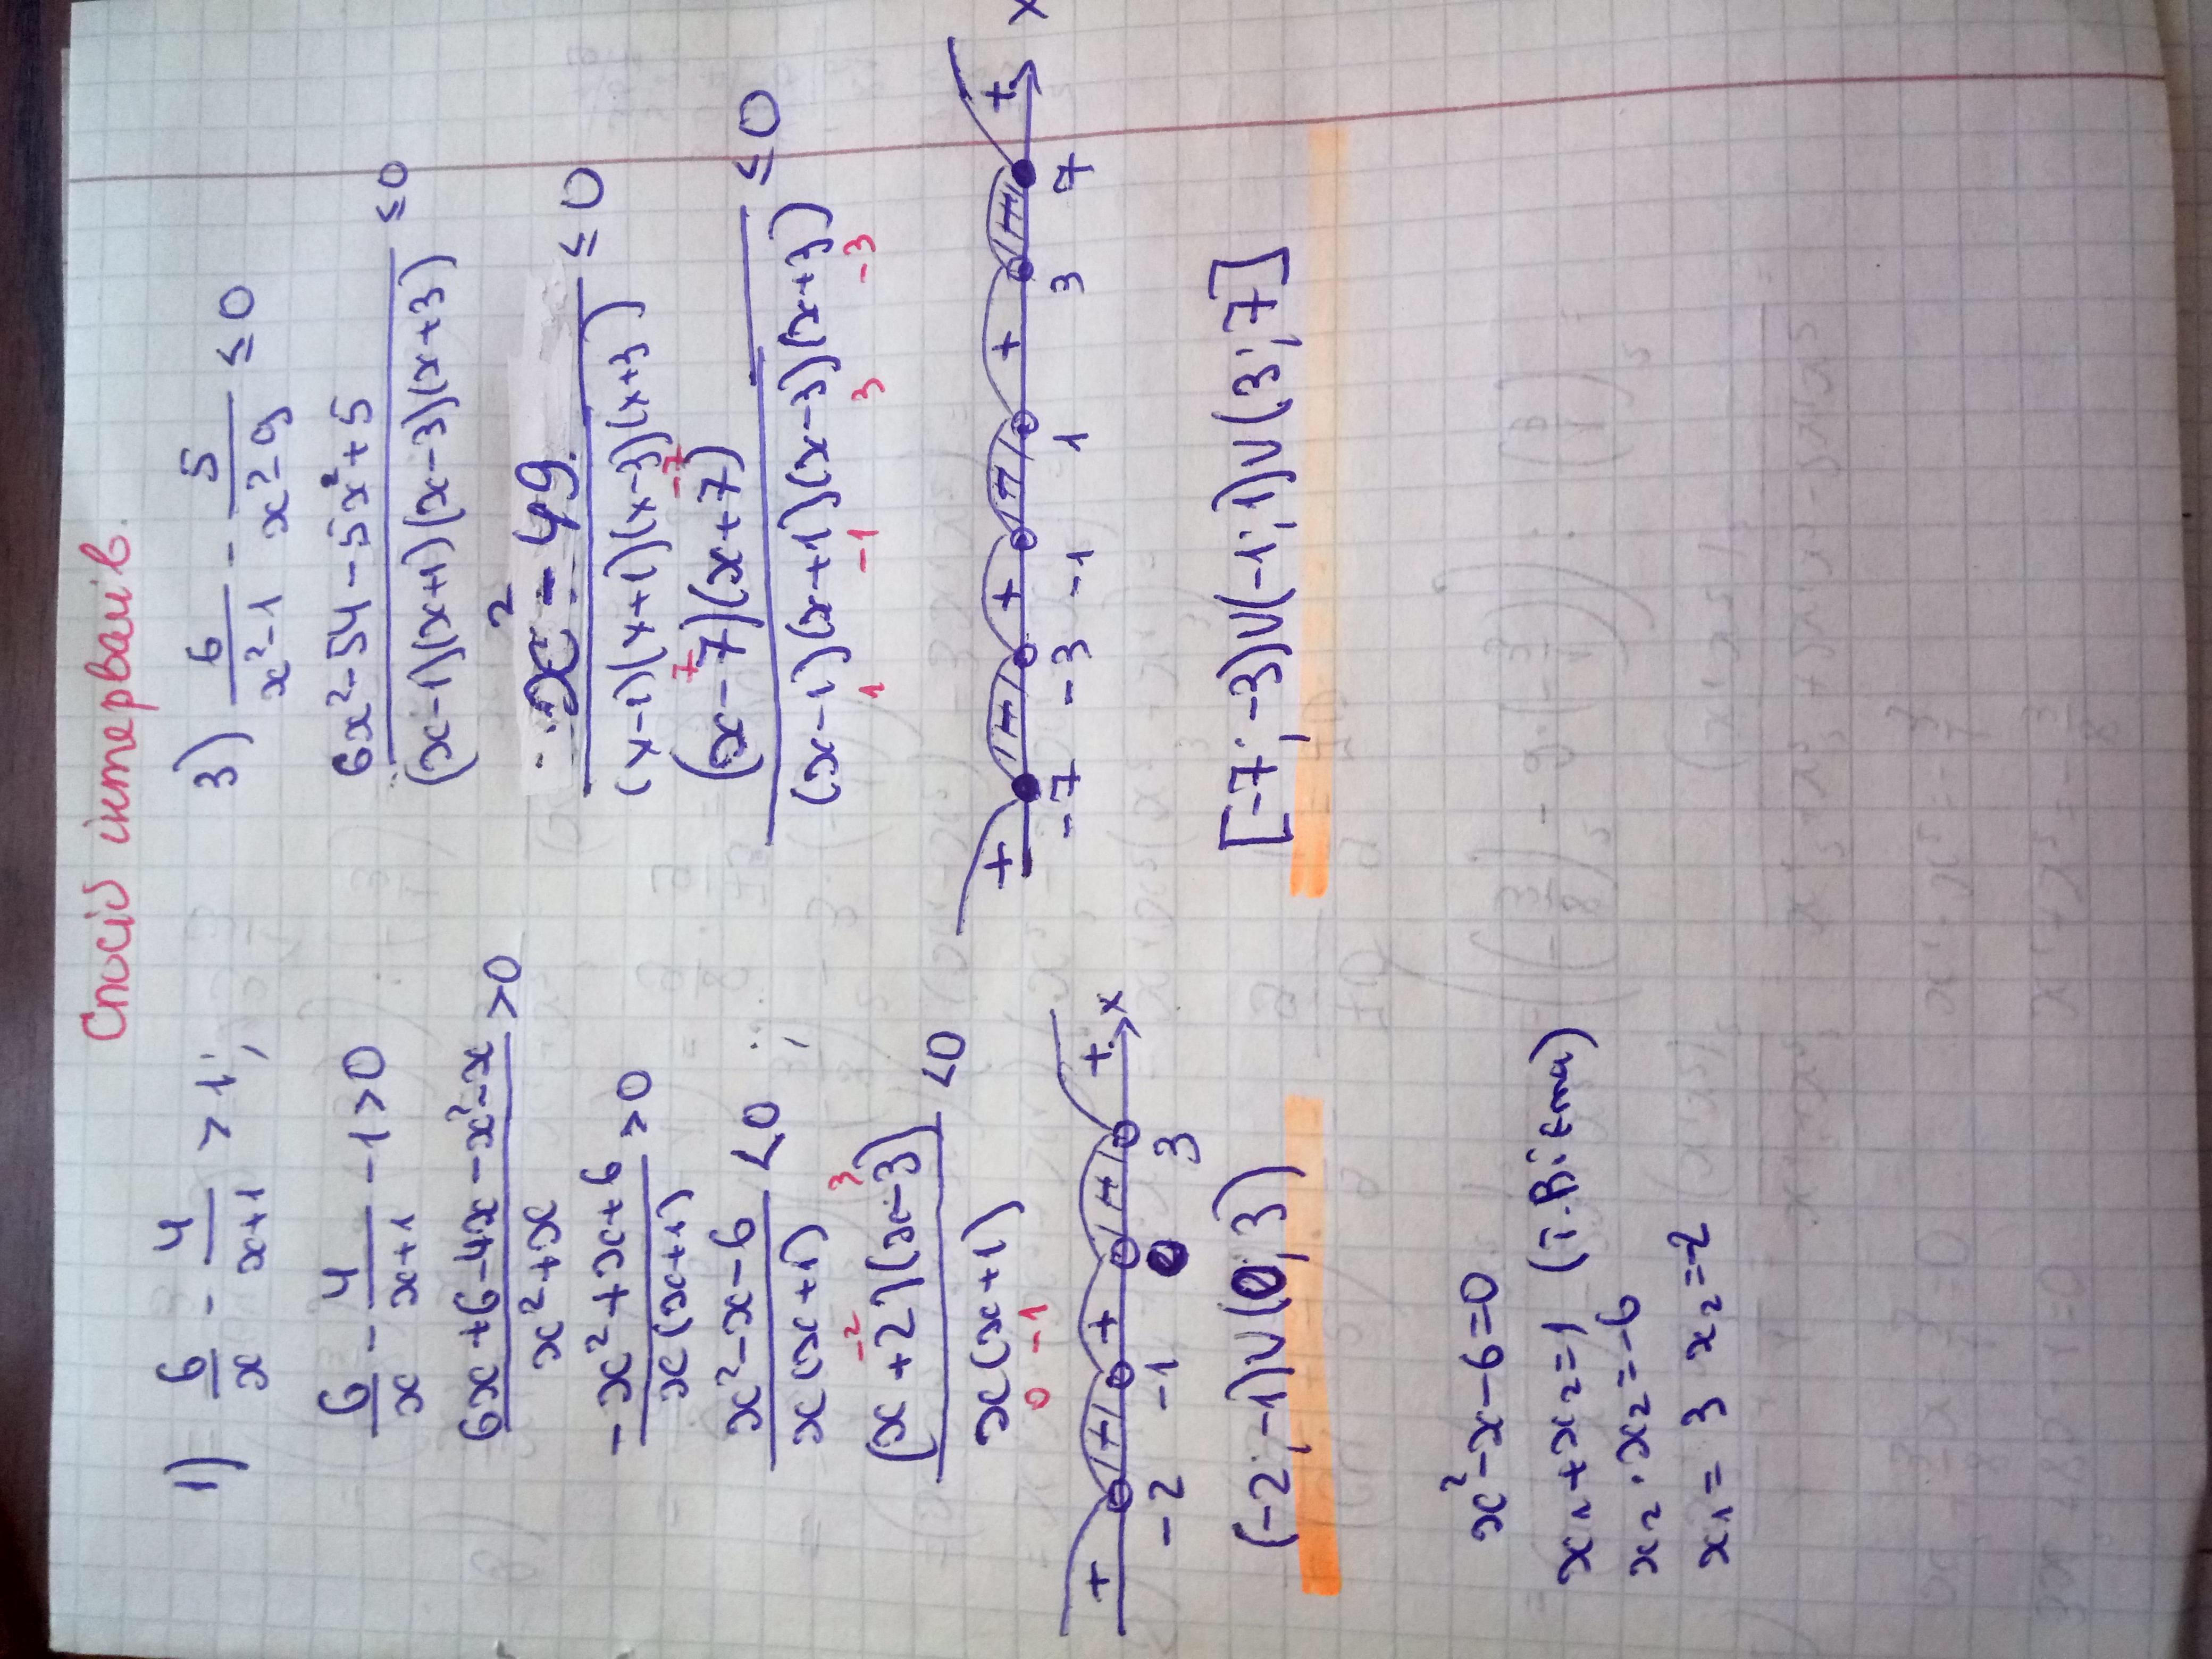 Спосіб інтервалів.
1) 6/x - 4/(x+1) > 1;
6/x - 4/(x+1) - 1 > 0
(6x+6-4x-x²-x)/(x²+x) > 0
(-x²+x+6)/(x(x+1)) > 0
(x²-x-6)/(x(x+1)) < 0
-2 3
((x+2)(x-3))/(x(x+1)) < 0
0 -1
+ - + - + x
-2 -1 0 3
(-2;-1)∪(0;3)
x²-x-6=0
x₁+x₂=1 (т.Вієта)
x₂·x₂=-6
x₁=3 x₂=-2
3) 6/(x²-1) - 5/(x²-9) ≤ 0
(6x²-54-5x²+5)/((x-1)(x+1)(x-3)(x+3)) ≤ 0
(x²-49)/((x-1)(x+1)(x-3)(x+3)) ≤ 0
7 -7
((x-7)(x+7))/((x-1)(x+1)(x-3)(x+3)) ≤ 0
1 -1 3 -3
+ - + - + - + x
-7 -3 -1 1 3 7
[-7;-3)∪(-1;1)∪(3;7]